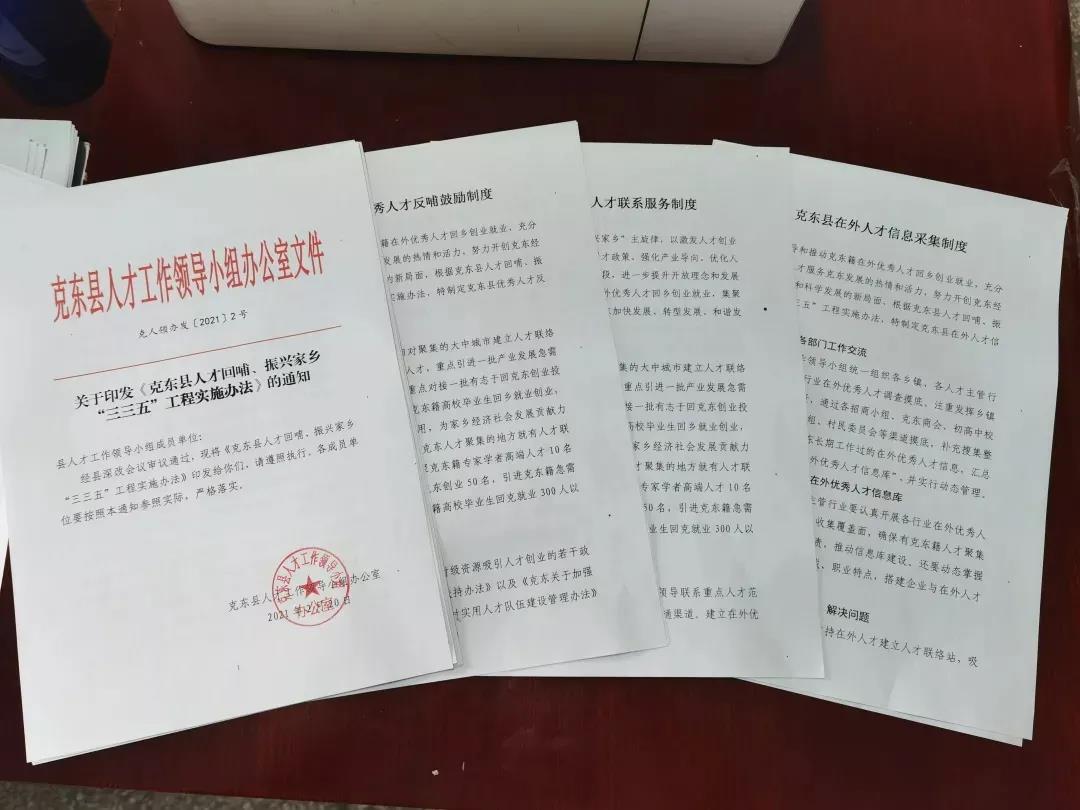 克东县人才工作领导小组办公室文件
克人领办发〔2021〕2号
关于印发《克东县人才回哺、振兴家乡
“三三五”工程实施办法》的通知
县人才工作领导小组成员单位：
经县深改会议审议通过，现将《克东县人才回哺、振兴家乡
“三三五”工程实施办法》印发给你们，请遵照执行。各成员单
位要按照本通知参照实际，严格落实。
克东县人才工作领导小组办公室
2021年 月20日
1
秀人才反哺鼓励制度
籍在外优秀人才回乡创业就业，充分
发展的热情和活力，努力开创克东经
的新局面，根据克东县人才回哺、振
实施办法，特制定克东县优秀人才反
对聚集的大中城市建立人才联络
人才，重点引进一批产业发展急需
重点对接一批有志于回克东创业投
克东籍高校毕业生回乡就业创业，
用，为家乡经济社会发展贡献力
克东人才聚集的地方就有人才联
克东籍专家学者高端人才10名
东创业50名，引进克东籍急需
籍高校毕业生回克就业300人以
级资源吸引人才创业的若干政
持办法》以及《克东关于加强
实用人才队伍建设管理办法》
人才联系服务制度
家乡”主旋律，以激发人才创业
才政策、强化产业导向、优化人
段，进一步提升开放理念和发展
外优秀人才回乡创业就业，集聚
东加快发展、转型发展、和谐发
集的大中城市建立人才联络
重点引进一批产业发展急需
接一批有志于回克东创业投
高校毕业生回乡就业创业，
家乡经济社会发展贡献力
才聚集的地方就有人才联
专家学者高端人才10名
50名，引进克东籍急需
业生回克就业300人以
领导联系重点人才范
通渠道。建立在外优
克东县在外人才信息采集制度
和推动克东籍在外优秀人才回乡创业就业，充分
才服务克东发展的热情和活力，努力开创克东经
和科学发展的新局面，根据克东县人才回哺、振
三五”工程实施办法，特制定克东县在外人才信
各部门工作交流
领导小组统一组织各乡镇、各人才主管行
行业在外优秀人才调查摸底、注重发挥乡镇
，通过各招商小组、克东商会、初高中校
组、村民委员会等渠道摸底、补充搜集整
东长期工作过的在外优秀人才信息，汇总
外优秀人才信息库”，并实行动态管理。
在外优秀人才信息库
主管行业要认真开展各行业在外优秀人
收集覆盖面，确保有克东籍人才聚集
责，推动信息库建设、还要动态掌握
、职业特点，搭建企业与在外人才
解决问题
持在外人才建立人才联络站，吸